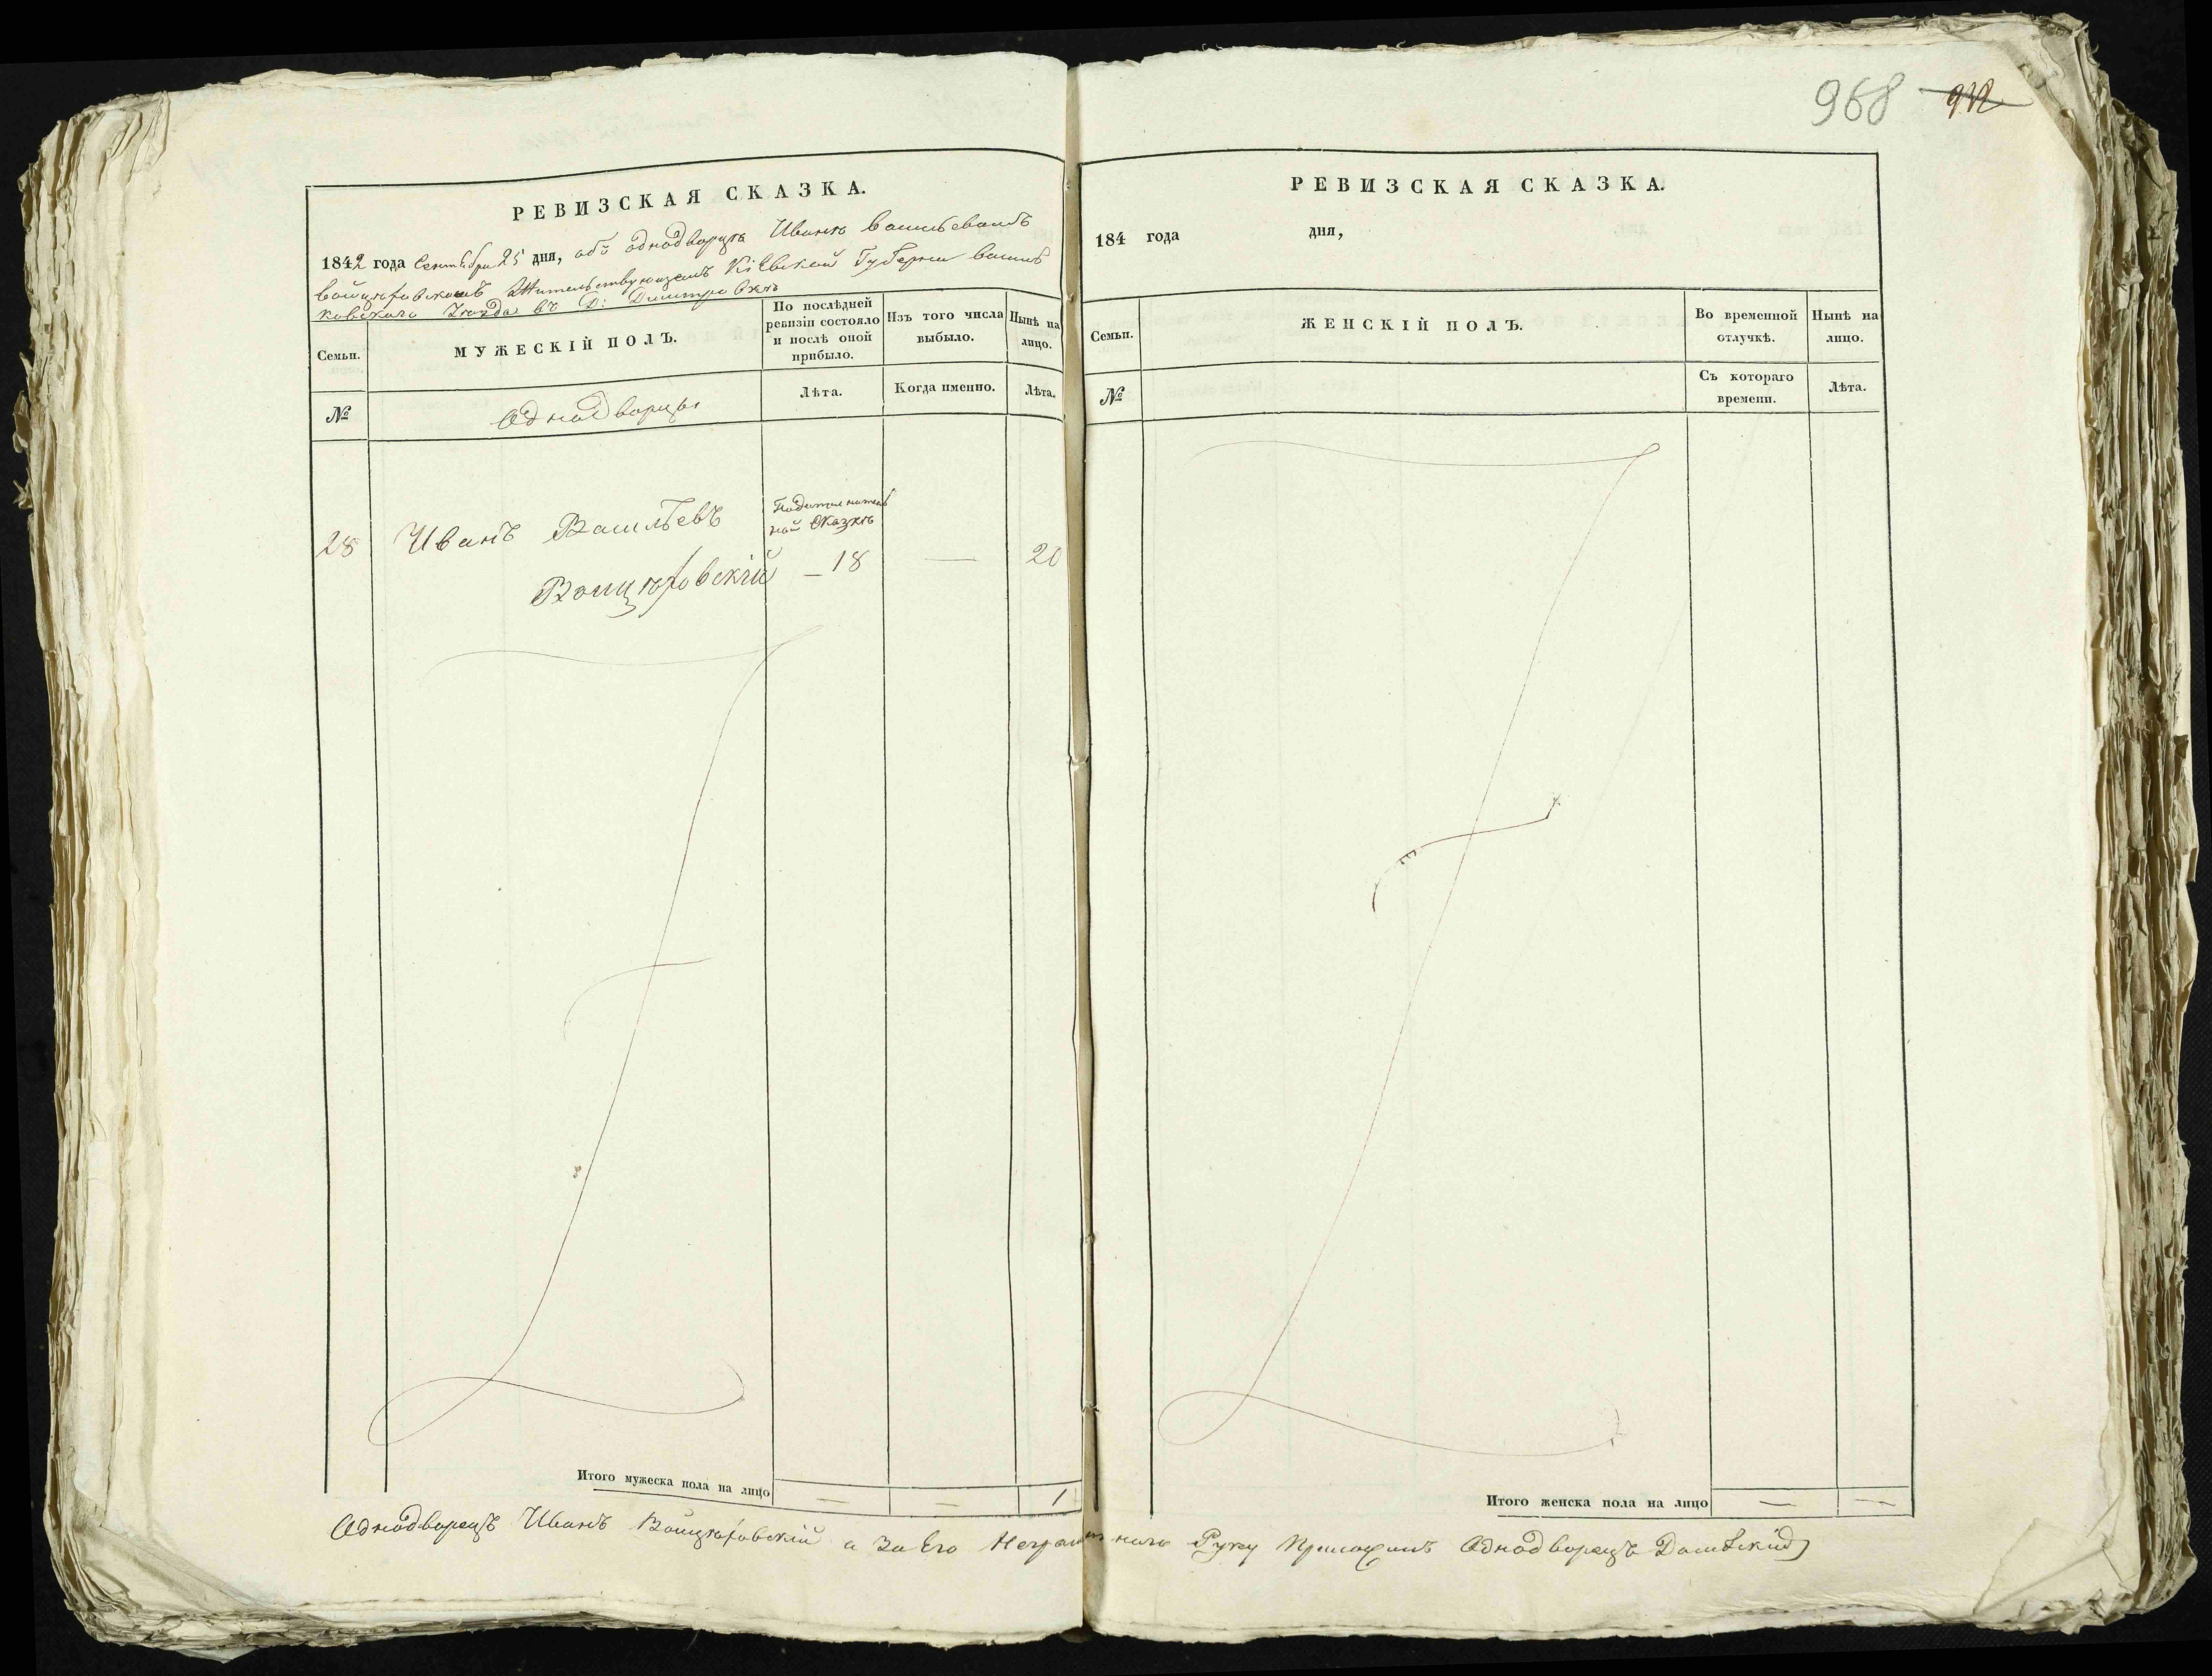 968 932
РЕВИЗСКАЯ СКАЗКА.
1842 года Сентября 25 дня, объ однодворцѣ Иванѣ Васильевомъ
Войцѣховскомъ Жительствующемъ Кіевской Губерніи Василь
ковскаго Уезда въ Д: Дмитровкѣ
Семьи.
МУЖЕСКІЙ ПОЛЪ.
По послѣдней ревизіи состояло и послѣ оной прибыло.
Изъ того числа выбыло.
Нынѣ на лицо.
№
Однодворцы
Лѣта.
Когда именно.
Лѣта.
28 Иванъ Васильевъ
Войцѣховскій
ной Сказкѣ
— 18 — 20
Итого мужеска пола на лицо — — 1
РЕВИЗСКАЯ СКАЗКА.
184 года дня,
Семьи.
ЖЕНСКІЙ ПОЛЪ.
Во временной отлучкѣ.
Нынѣ на лицо.
№
Съ котораго времени.
Лѣта.
Итого женска пола на лицо — —
Однодворецъ Иванъ Войцѣховскій а За Его Неграмотного Руку Приложилъ Однодворецъ